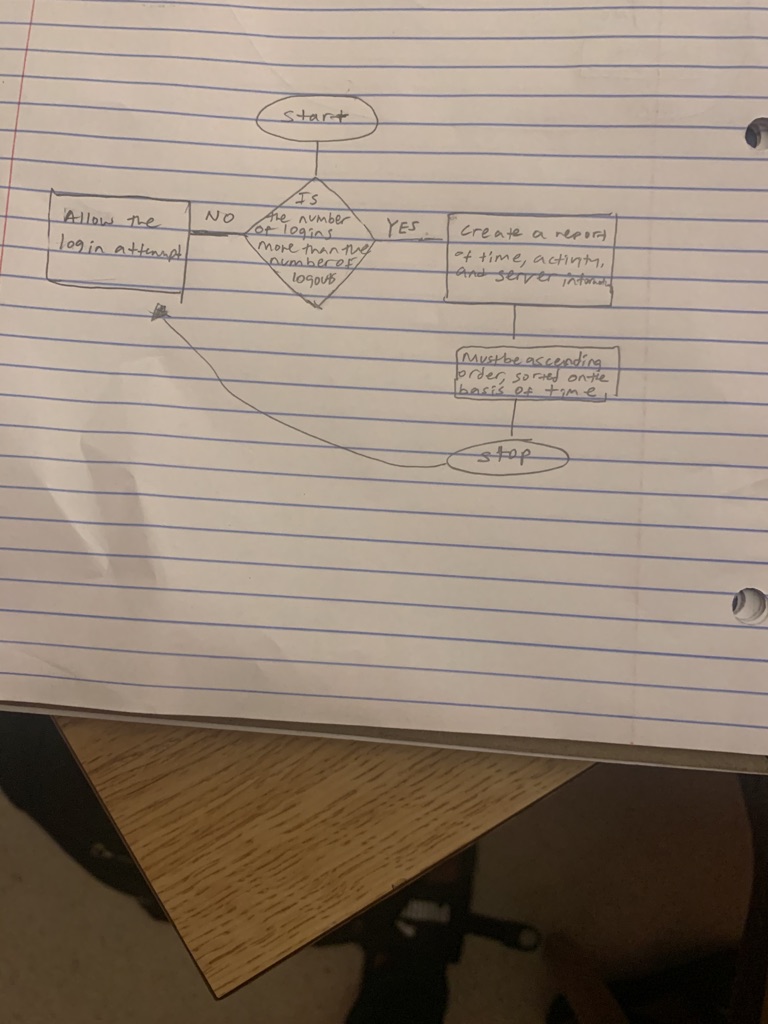 Start
Is
the number
of logins
more than the
number of
logouts
NO
Allow the
login attempt
YES
Create a report
of time, activity,
and server
Must be ascending
order, sorted on the
basis of time
stop